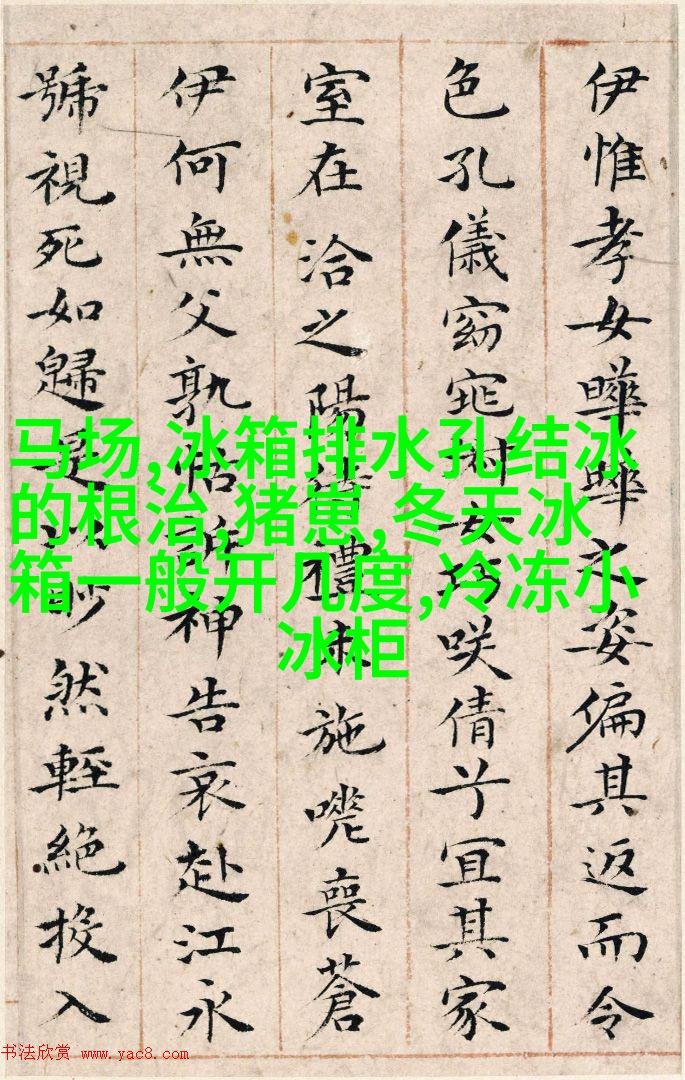 伊惟孝女曄曄之姿偏其返而令
色孔儀窈窕淑女巧咲倩兮宜其家
室在洽之陽待禮未施嗟喪蒼
伊何無父孰怙訴神告哀赴江永
號視死如歸是以眇然輕絕投入
马场,冰箱排水孔结冰
的根治,猪崽,冬天冰
箱一般开几度,冷冻小
冰柜
书法欣赏 www.yac8.com